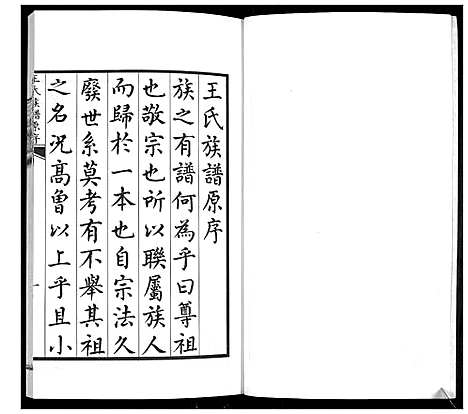 王氏族譜原序
族之有譜何為乎曰尊祖
也敬宗也所以聯屬族人
而歸於一本也自宗法久
廢世系莫考有不舉其祖
之名況高曾以上乎且小
王氏族譜原序
一